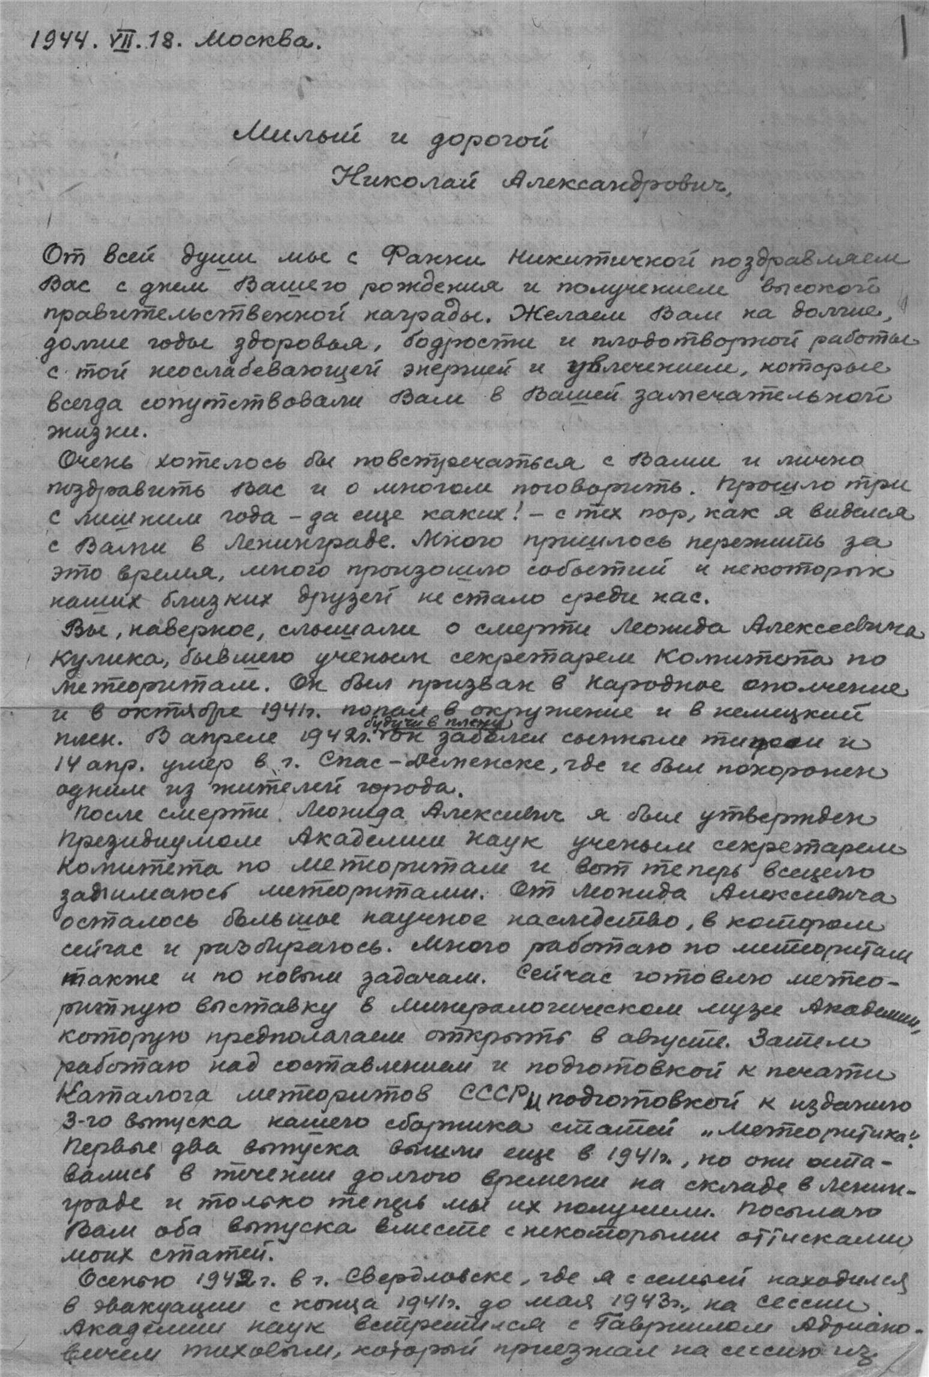 1
1944. VII. 18. Москва.
Милый и дорогой
Николай Александрович,
От всей души мы с Фанни Никитичной поздравляем
Вас с днем Вашего рождения и получением высокой
правительственной награды. Желаем Вам на долгие,
долгие годы здоровья, бодрости и плодотворной работы
с той неослабевающей энергией и увлечением, которые
всегда сопутствовали Вам в Вашей замечательной
жизни.
Очень хотелось бы повстречаться с Вами и лично
поздравить Вас и о многом поговорить. Прошло три
с лишним года – да еще каких! – с тех пор, как я виделся
с Вами в Ленинграде. Много пришлось пережить за
это время, много произошло событий и некоторых
наших близких друзей не стало среди нас.
Вы, наверное, слышали о смерти Леонида Алексеевича
Кулика, бывшего ученым секретарем Комитета по
метеоритам. Он был призван в народное ополчение
и в октябре 1941г. попал в окружение и в немецкий
плен. В апреле 1942г. будучи в плену он заболел сыпным тифом и
14 апр. умер в г. Спас-Деменске, где и был похоронен
одним из жителей города.
После смерти Леонида Алексеевич я был утвержден
Президиумом Академии Наук ученым секретарем
Комитета по метеоритам и вот теперь всецело
занимаюсь метеоритами. От Леонида Алексеевича
осталось большое научное наследство, в котором
сейчас и разбираюсь. Много работаю по метеоритам
также и по новым задачам. Сейчас готовлю метео-
ритную выставку в Минералогическом музее Академии,
которую предполагаем открыть в августе. Затем
работаю над составлением и подготовкой к печати
Каталога метеоритов СССР и подготовкой к изданию
3-го выпуска нашего сборника статей „Метеоритика".
Первые два выпуска вышли еще в 1941г., но они оста-
вались в течении долгого времени на складе в Ленин-
граде и только теперь мы их получили. Посылаю
Вам оба выпуска вместе с некоторыми оттисками
моих статей.
Осенью 1942г. в г. Свердловске, где я с семьей находился
в эвакуации с конца 1941г. до мая 1943г., на сессии
Академии наук встретился с Гавриилом Адриано-
вичем Тиховым, который приезжал на сессию из